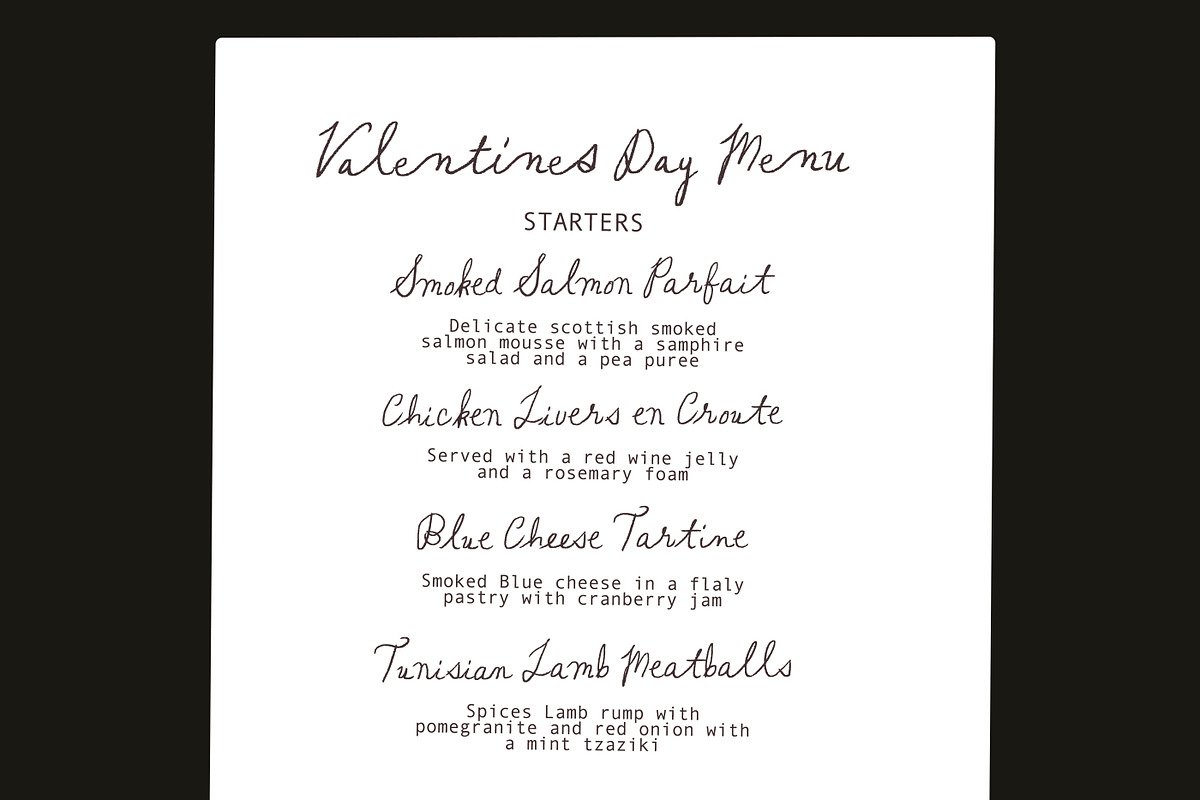 Valentines Day Menu
STARTERS
Smoked Salmon Parfait
Delicate scottish smoked
salmon mousse with a samphire
salad and a pea puree
Chicken Livers en Croute
Served with a red wine jelly
and a rosemary foam
Blue Cheese Tartine
Smoked Blue cheese in a flaly
pastry with cranberry jam
Tunisian Lamb Meatballs
Spices Lamb rump with
pomegranite and red onion with
a mint tzaziki